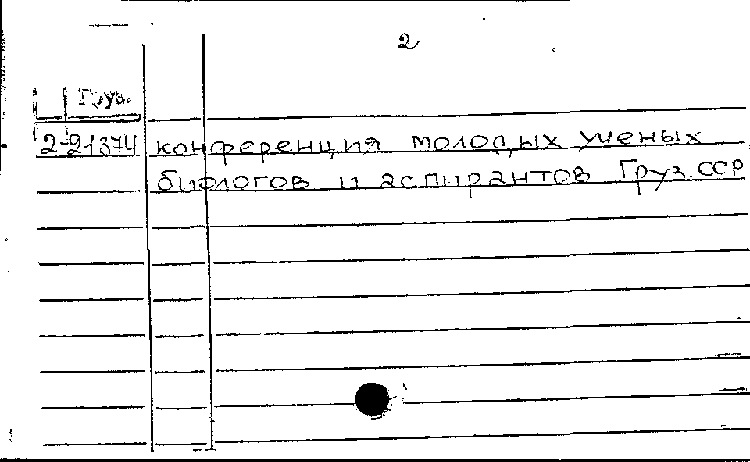 2
Груз.
2-21374 конференция молодых ученых
биологов и аспирантов Груз.ССР